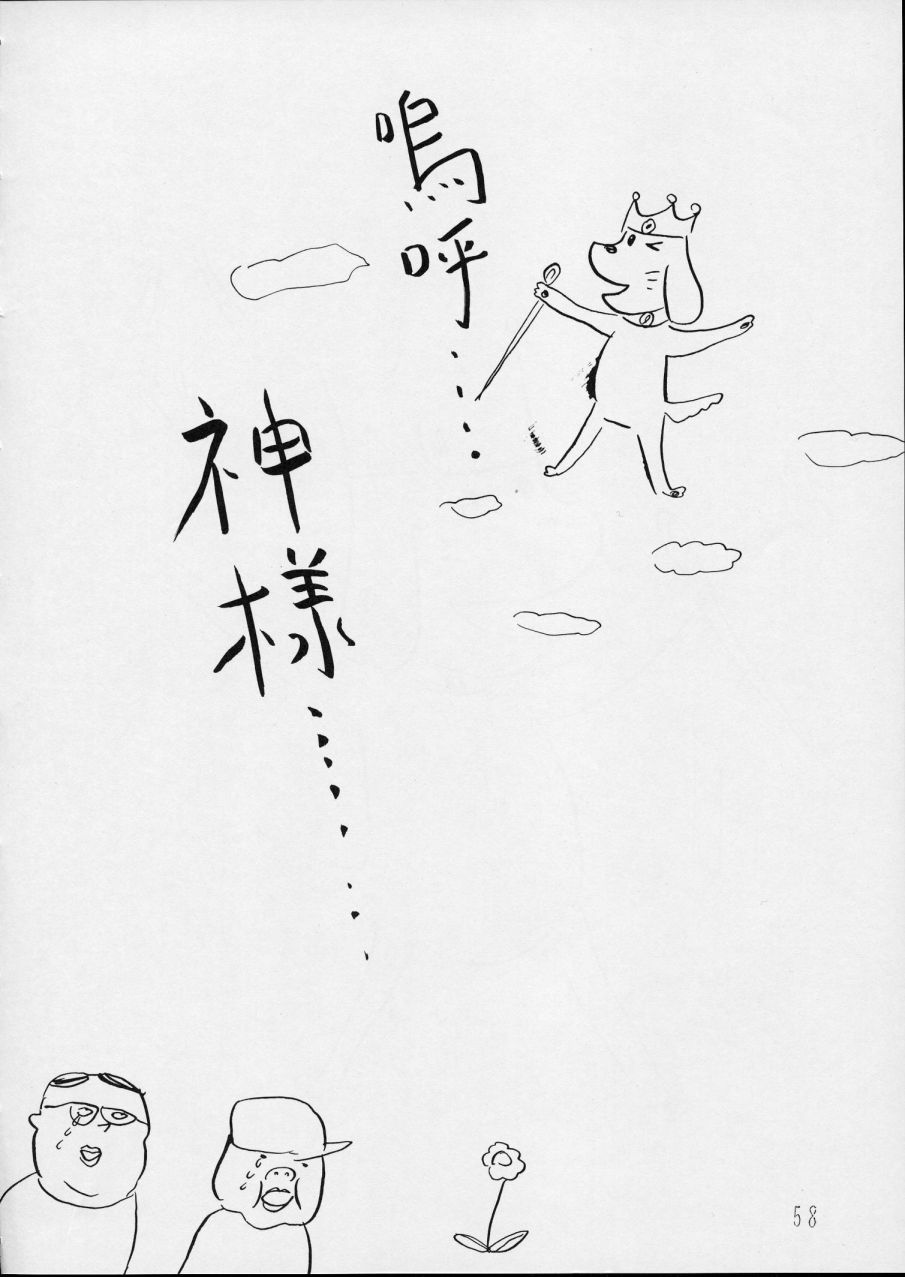 嗚呼····
神様········
58